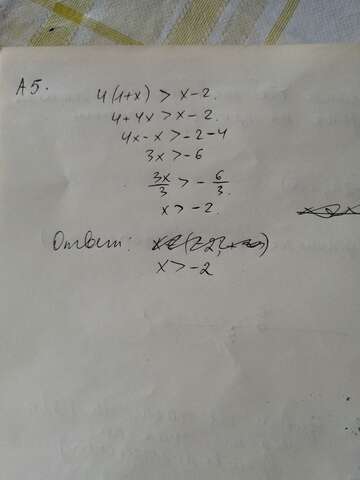 A5.
4(1+x) > x-2.
4+4x > x-2.
4x-x > -2-4
3x > -6
3x/3 > -6/3.
x > -2.
Ответ:
x > -2